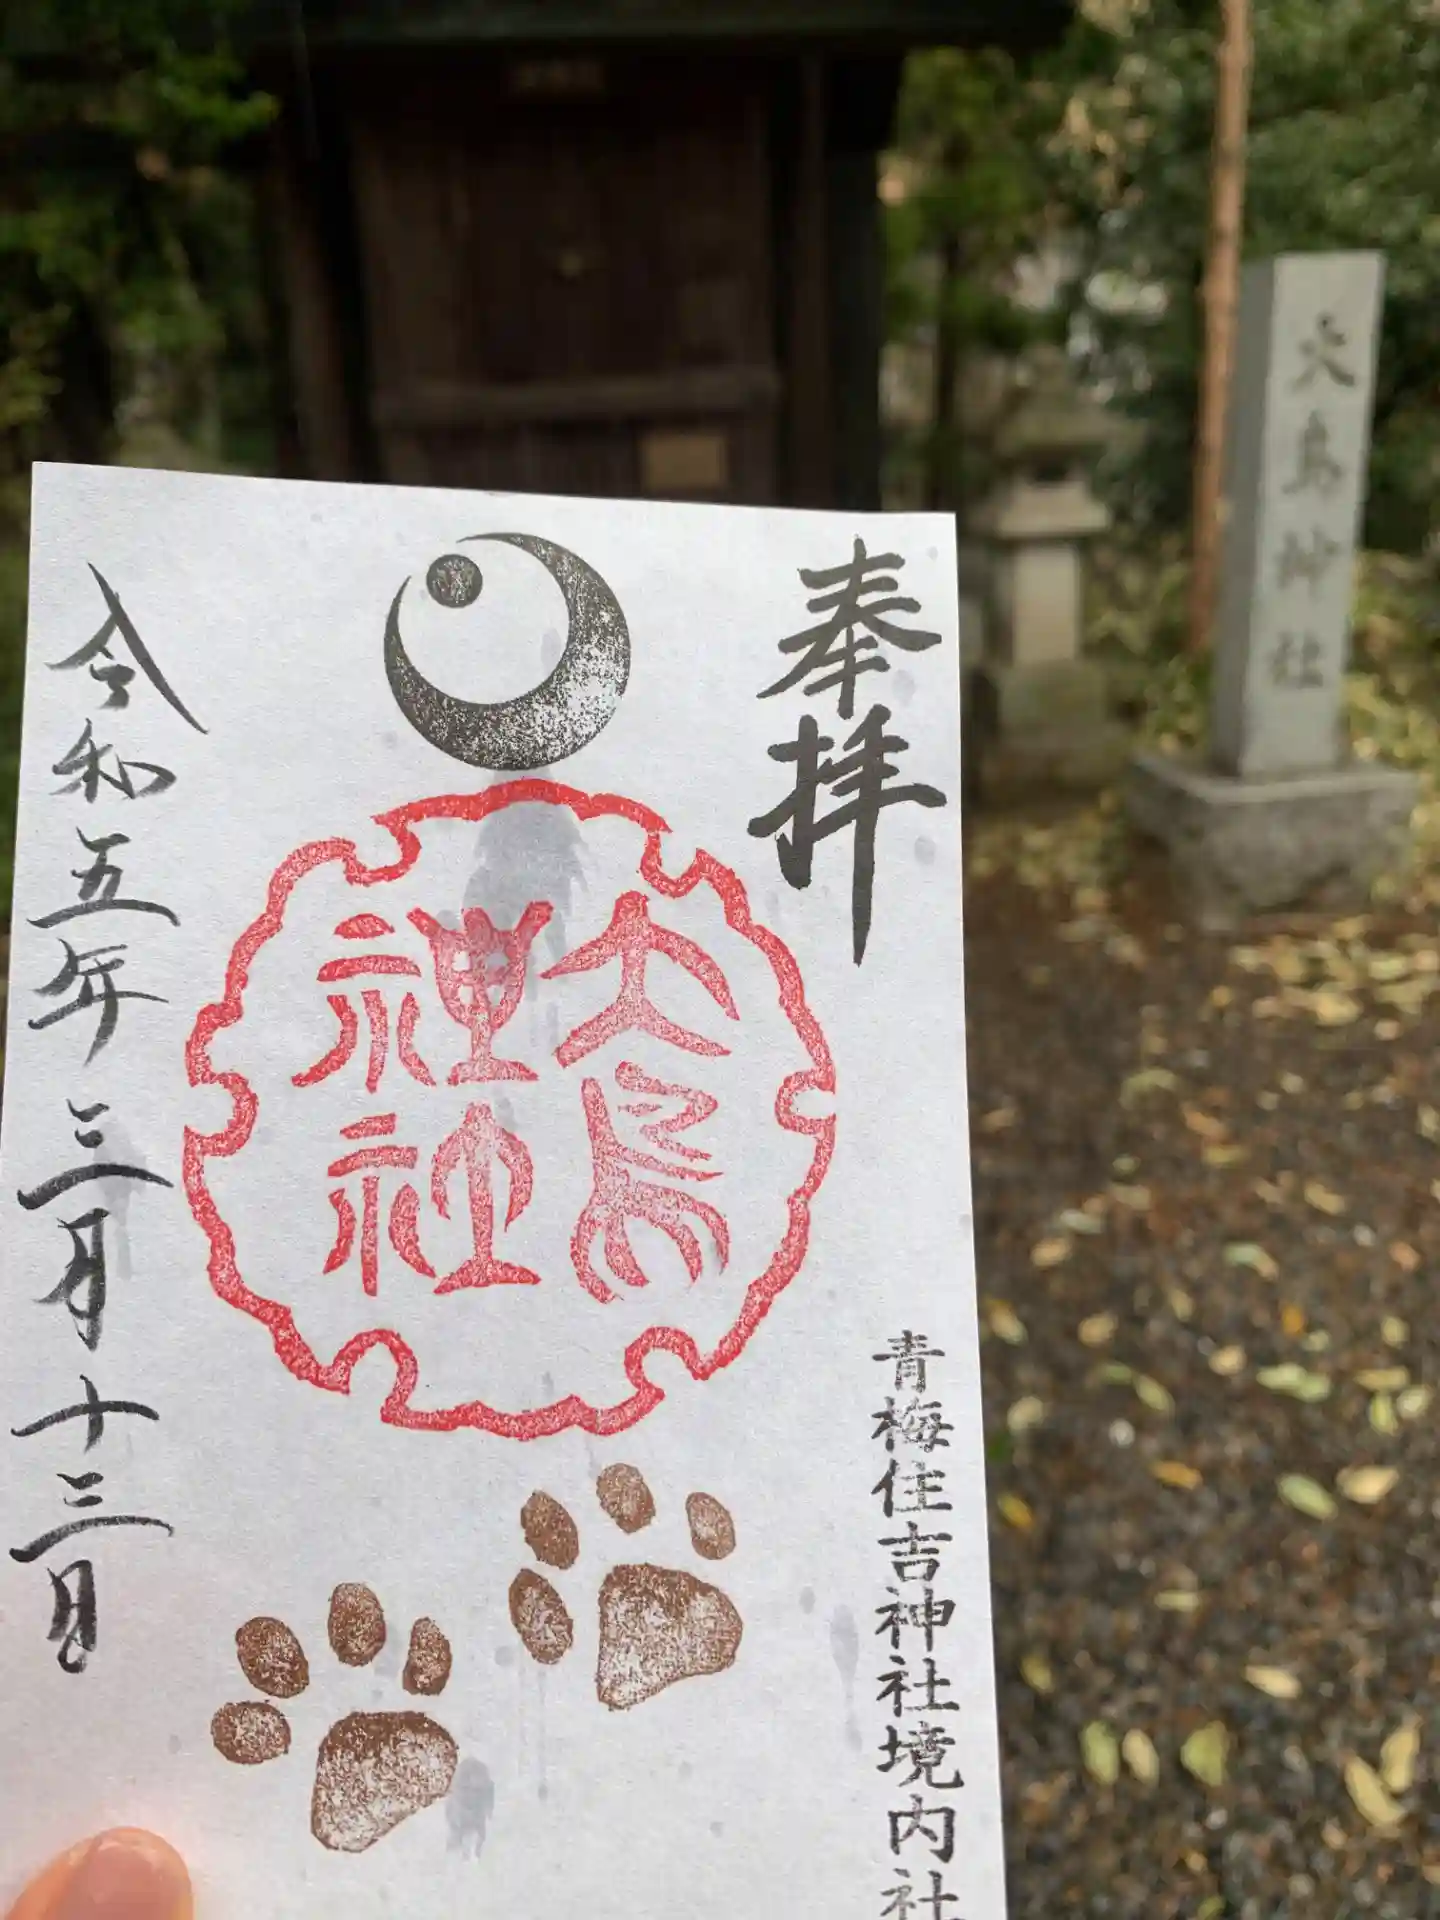 奉拝
大鳥
神社
青梅住吉神社境内社
令和五年三月十三日
大鳥神社